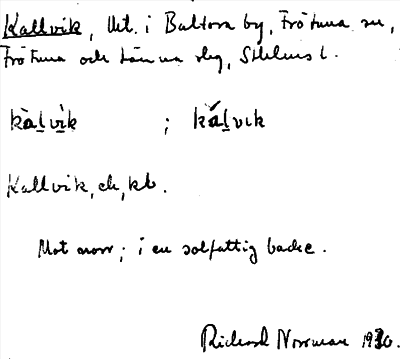 Kallvik, Utt. i Baltora by, Frötuna sn,
Frötuna och Länna slg, Sthlms l.
kàl̲vìk ; kál̲vɩk
Kallvik, ek, kb.
Mot norr; i en solfattig backe.
Richard Norrman 1930.